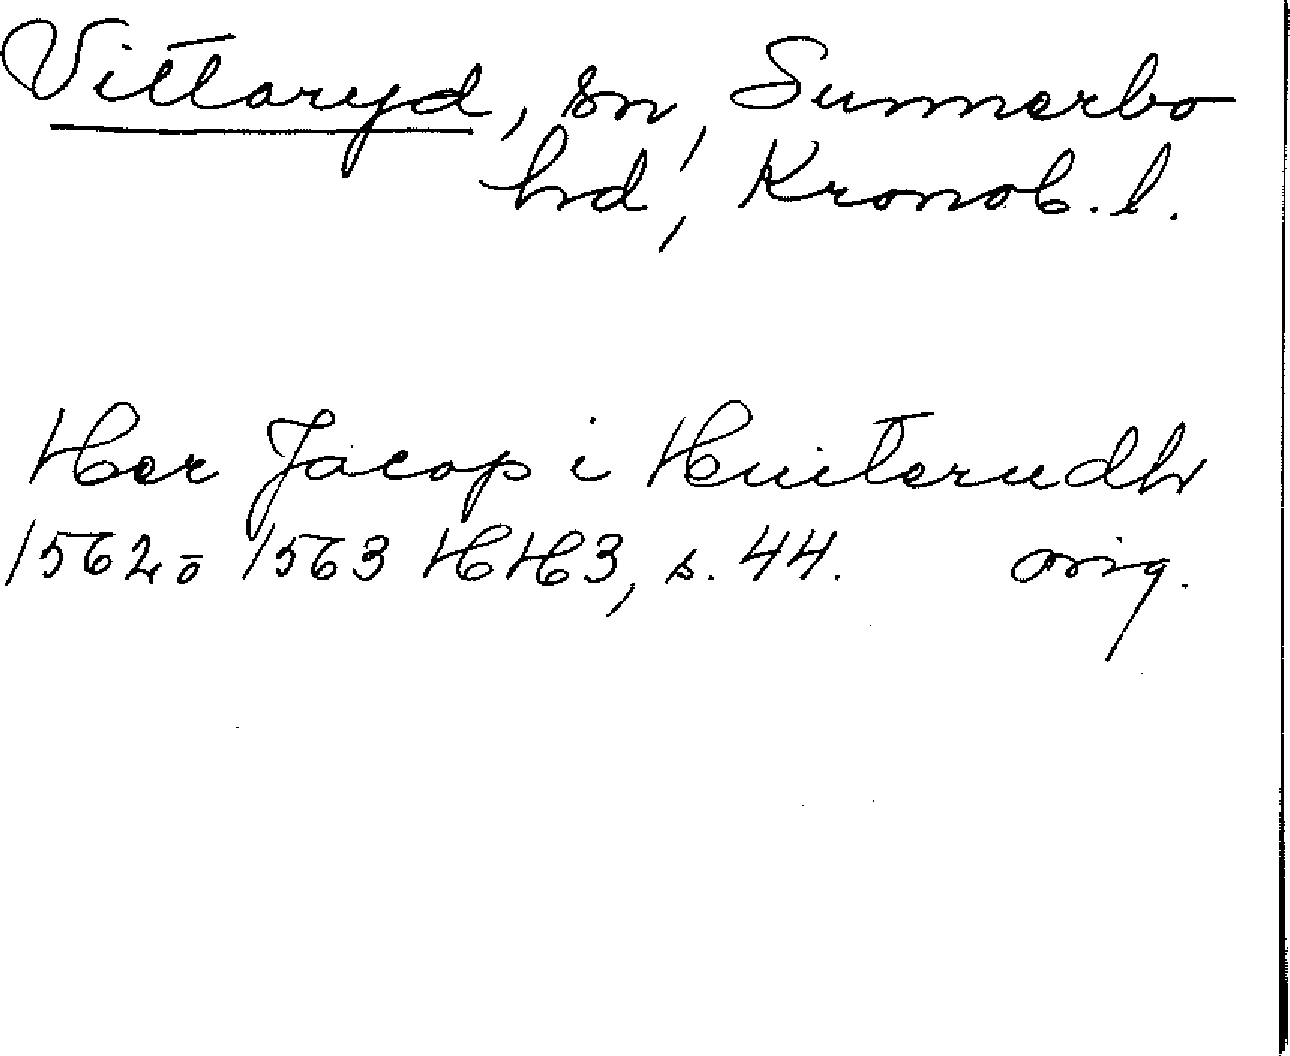 Vittaryd, sn, Sunnerbo
hd, Kronob. l.
Her Jacop i Huiterudh
1562 o 1563 HH3, s. 44. orig.